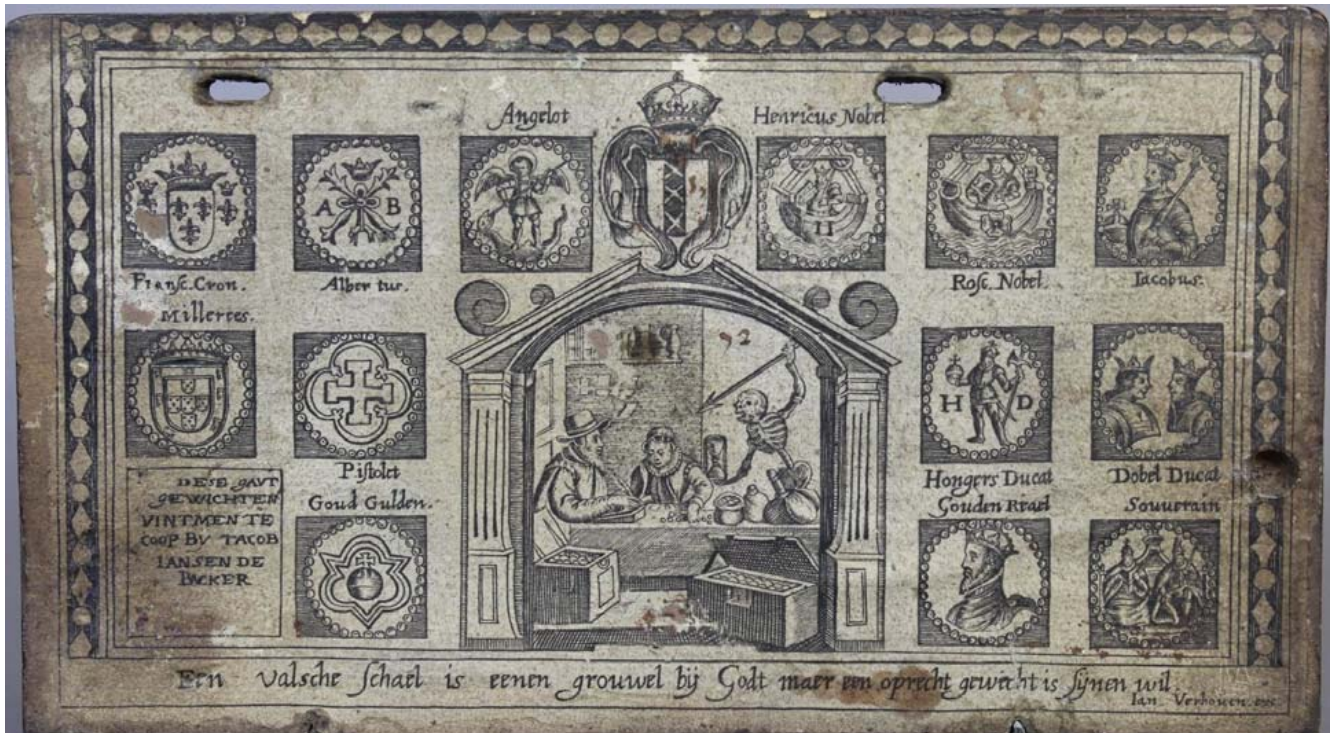 Angelot
Henricus Nobel
A B
II
R
Fransc. Cron.
Albertus.
Rose. Nobel.
Iacobus.
Millerees.
H D
Pistolet
Hongers Ducat
Dobel Ducat
DESE GAVT
GEWICHTEN
VINTMEN TE
COOP BV IACOB
IANSEN DE
BACKER
Goud Gulden.
Gouden Reael
Souverain
Een valsche schael is eenen grouwel bij Godt maer een oprecht gewicht is sijnen wil.
Ian Verhouen. exc.